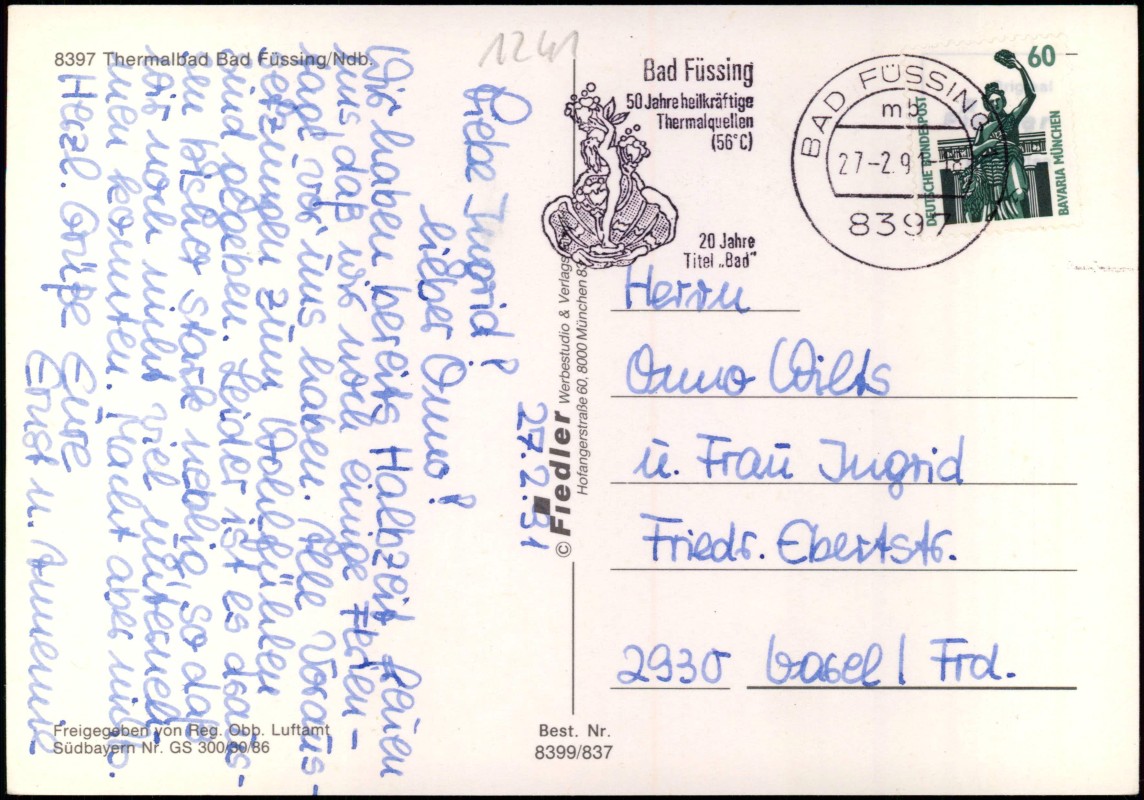 8397 Thermalbad Bad Füssing/Ndb.
1241
27.2.91
Liebe Ingrid!
lieber Onno!
Wir haben bereits Halbzeit, freuen
uns, daß wir noch einige Ferien-
tage vor uns haben. Alle Voraus-
setzungen zum Wohlfühlen
sind gegeben. Leider ist es draus-
sen bisher stark neblig, so daß
wir noch nicht viel unterneh-
men konnten. Macht aber nichts.
Herzl. Grüße Eure
Ernst u. Annemie
Freigegeben von Reg. Obb. Luftamt
Südbayern Nr. GS 300/90/86
© Fiedler Werbestudio & Verlags
Hofangerstraße 60, 8000 München 83
Best. Nr.
8399/837
Bad Füssing
50 Jahre heilkräftige
Thermalquellen
(56°C)
20 Jahre
Titel „Bad"
BAD FÜSSING
mb
27-2.91
8397
60
DEUTSCHE BUNDESPOST
BAVARIA MÜNCHEN
Herrn
Onno Wilts
u. Frau Ingrid
Friedr. Ebertstr.
2930 Varel / Frd.